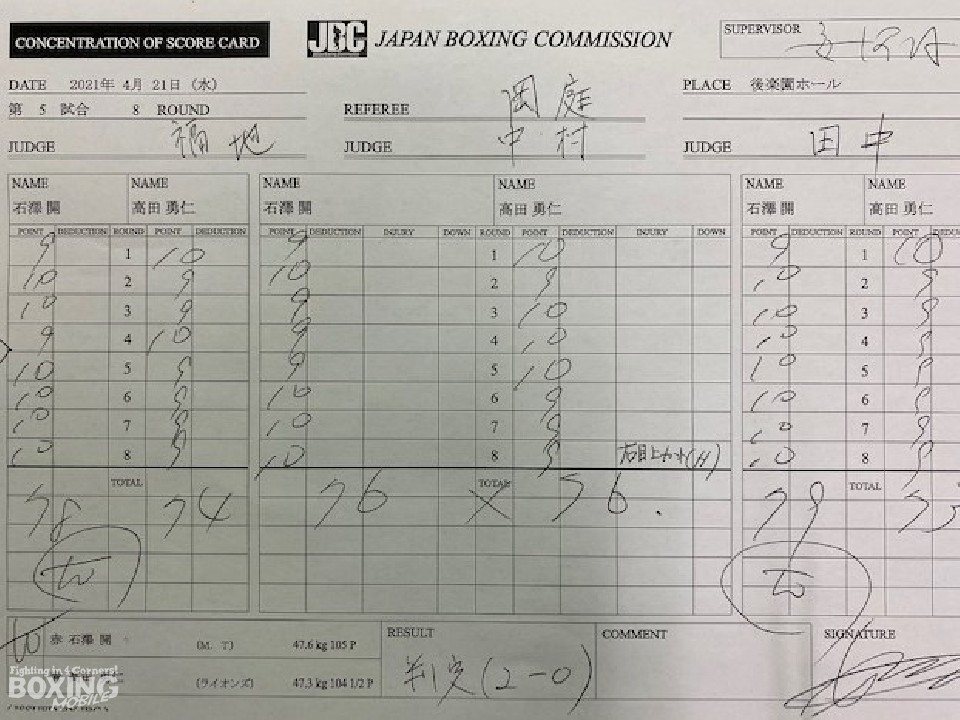 CONCENTRATION OF SCORE CARD
JBC JAPAN BOXING COMMISSION
SUPERVISOR
DATE 2021年 4月 21日 (水)
PLACE 後楽園ホール
第 5 試合 8 ROUND
REFEREE 岡庭
JUDGE 福地
JUDGE 中村
JUDGE 田中
NAME NAME NAME NAME NAME NAME
石澤 開 高田 勇仁 石澤 開 高田 勇仁 石澤 開 高田 勇仁
POINT DEDUCTION ROUND POINT DEDUCTION POINT DEDUCTION INJURY DOWN ROUND POINT DEDUCTION INJURY DOWN POINT DEDUCTION ROUND POINT
9 1 10 9 1 10 9 1 10
10 2 9 10 2 9 10 2 9
10 3 9 9 3 10 10 3 9
9 4 10 9 4 10 10 4 9
10 5 9 9 5 10 10 5 9
10 6 9 10 6 9 10 6 9
10 7 9 10 7 9 10 7 9
10 8 9 10 8 9 10 8 9
TOTAL TOTAL TOTAL
78 74 76 X 76 79
赤 石澤 開 (M. T) 47.6 kg 105 P
(ライオンズ) 47.3 kg 104 1/2 P
RESULT
判定 (2-0)
COMMENT
SIGNATURE
Fighting in 4 Corners!
BOXING
MOBILE